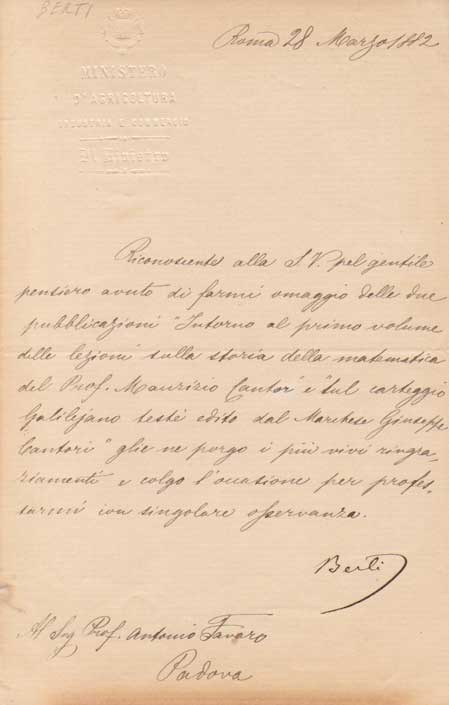 BERTI
Roma 28 Marzo 1882
MINISTERO
D'AGRICOLTURA
INDUSTRIA E COMMERCIO
Il Ministro
Riconoscente alla S. V. pel gentile
pensiero avuto di farmi omaggio delle due
pubblicazioni "Intorno al primo volume
delle lezioni sulla storia della matematica
del Prof. Maurizio Cantor" e "sul carteggio
Galilejano testè edito dal Marchese Giuseppe
Cantori" glie ne porgo i più vivi ringra-
ziamenti e colgo l'occasione per profes-
sarmi con singolare osservanza.
Berti
Al Sig Prof. Antonio Favaro
Padova